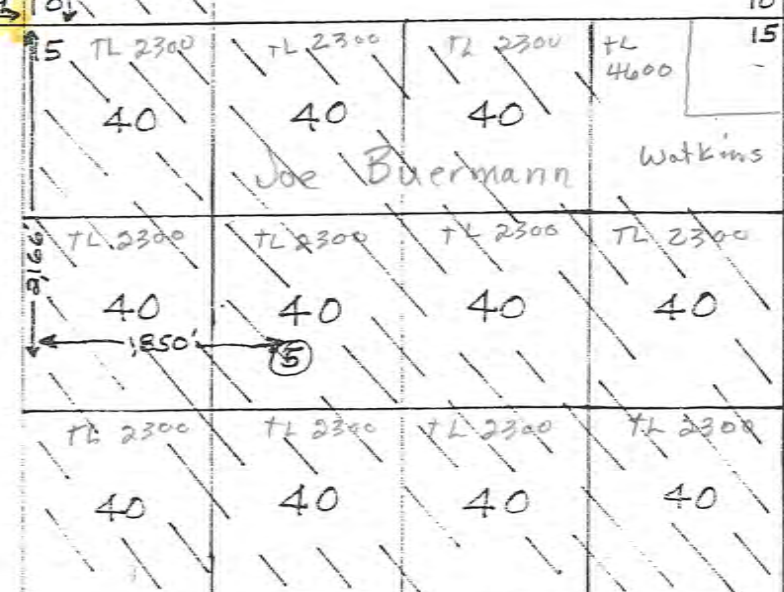 15 TL 2300 TL 2300 TL 2300 TL 4600 15
40 40 40
Joe Buermann Watkins
TL 2300 TL 2300 TL 2300 TL 2300
2,166'
40 40 40 40
1,850'
5
TL 2300 TL 2300 TL 2300 TL 2300
40 40 40 40